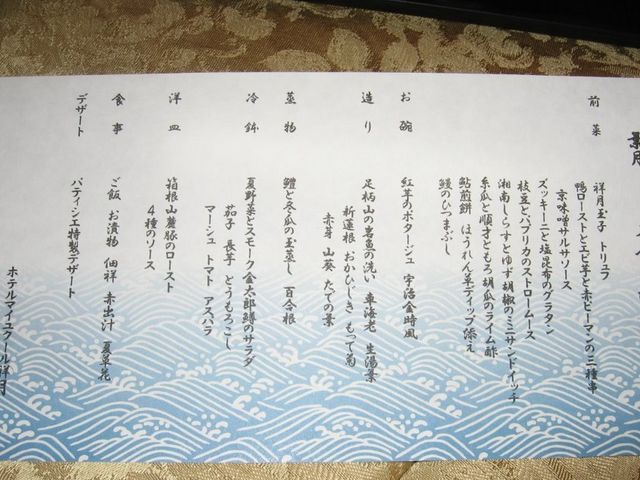 前菜
祥月玉子 トリュフ
鴨ローストとエビ芋と赤ピーマンの三種串
京味噌サルサソース
ズッキーニと塩昆布のグラタン
枝豆とパプリカのストロームース
湘南しらすとゆず胡椒のミニサンドイッチ
糸瓜と順才ともろ胡瓜のライム酢
鮎煎餅 ほうれん草ディップ添え
鰻のひつまぶし
お碗
紅芋のポタージュ 宇治金時風
造り
足柄山の岩魚の洗い 車海老 生湯葉
新蓮根 おかひじき もって菊
赤芽 山葵 たでの葉
蒸物
鱧と冬瓜の玉蒸し 百合根
冷鉢
夏野菜とスモーク金太郎鱒のサラダ
茄子 長芋 とうもろこし
マーシュ トマト アスパラ
洋皿
箱根山麓豚のロースト
4種のソース
食事
ご飯 お漬物 佃祥 赤出汁 夏草花
デザート
パティシエ特製デザート
ホテルマイユクール祥月